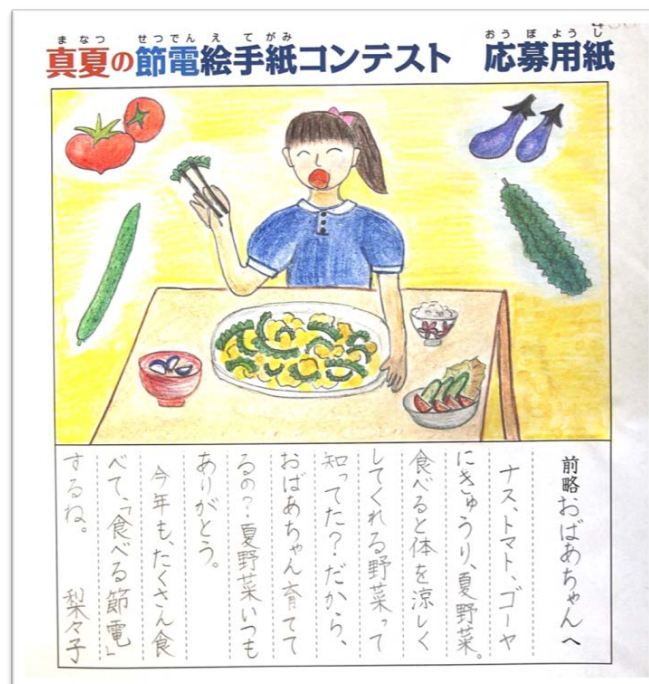 まなつ せつでん え てがみ おうぼようし
真夏の節電絵手紙コンテスト 応募用紙
前略おばあちゃんへ
ナス、トマト、ゴーヤ
にきゅうり、夏野菜。
食べると体を涼しく
してくれる野菜って
知ってた?だから、
おばあちゃん育てて
るの?夏野菜いつも
ありがとう。
今年も、たくさん食
べて、「食べる節電」
するね。 梨々子